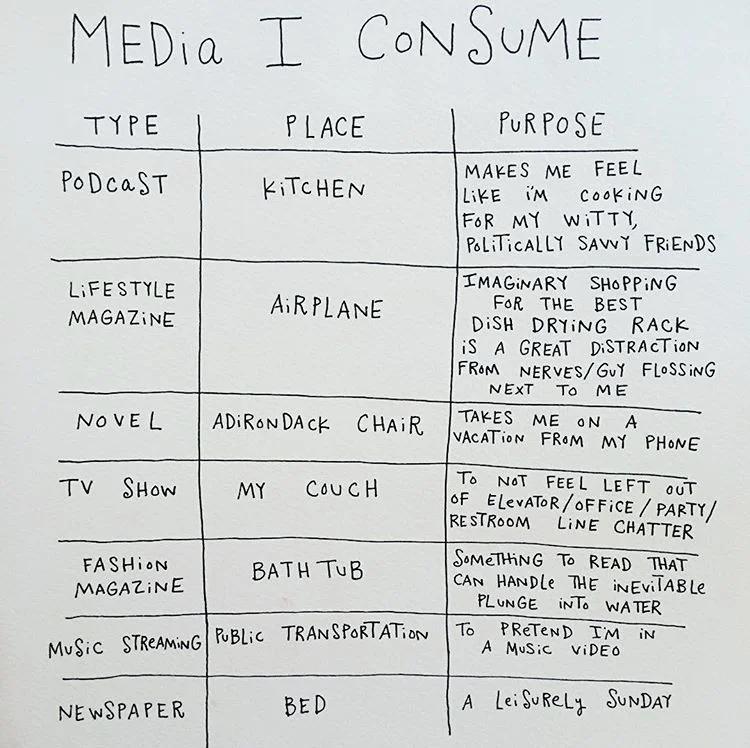 MEDia I CONSUME
TYPE PLACE PURPOSE
PODCaST KiTCHEN MAKES ME FEEL
LiKE i'M COOKiNG
FOR MY WiTTY,
POLiTiCALLY SAVVY FRiENDS
LiFESTYLE
MAGAZiNE AiRPLANE IMAGiNARY SHOPPiNG
FOR THE BEST
DiSH DRYiNG RACK
iS A GREAT DiSTRACTiON
FROM NERVES/GUY FLOSSiNG
NEXT TO ME
NOVEL ADiRONDACK CHAiR TAKES ME ON A
VACATiON FROM MY PHONE
TV SHOW MY COUCH TO NOT FEEL LEFT OUT
OF ELEVATOR/OFFiCE/PARTY/
RESTROOM LiNE CHATTER
FASHiON
MAGAZiNE BATH TUB SOMETHiNG TO READ THAT
CAN HANDLE THE iNEViTABLE
PLUNGE iNTO WATER
MUSiC STREAMiNG PUBLiC TRANSPORTATiON TO PRETEND I'M iN
A MUSiC ViDEO
NEWSPAPER BED A LEiSURELY SUNDAY